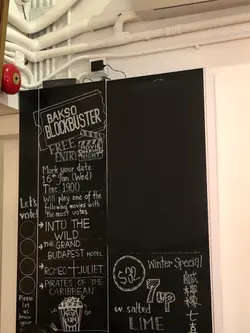 BAKSO
BLOCKBUSTER
FREE
ENTRY
MOVIE
NIGHT
Mark your date:
16th Jan (Wed)
Time 1900
Will play one of the
following movies with
the most votes.
Let's
vote!
→ INTO THE
WILD
→ THE GRAND
BUDAPEST HOTEL
→ ROMEO + JULIET
→ PIRATES OF THE
CARIBBEAN
Please
let us
know your
Winter Special
7up
w. salted
LIME
鹹檸七